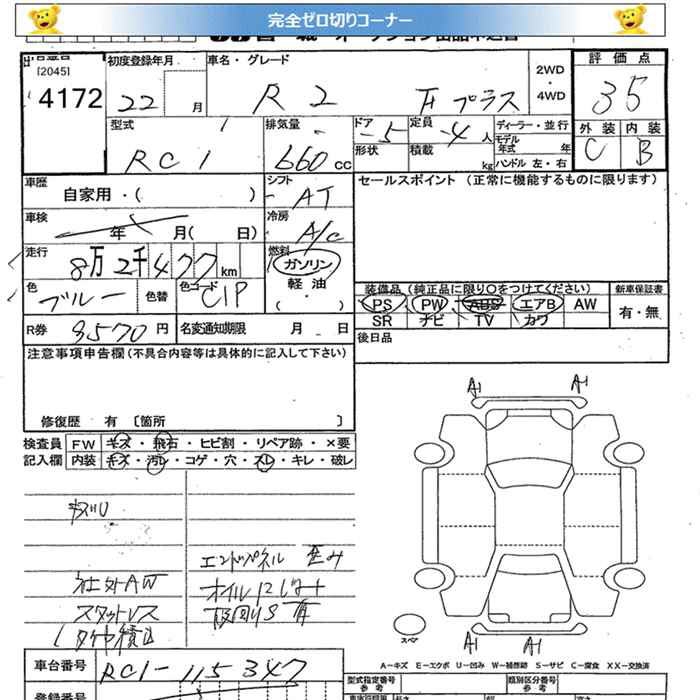 完全ゼロ切りコーナー
[2045]
4172
初度登録年月 22 月
車名・グレード R2 Fプラス
2WD ・ 4WD
評価点 35
外装 C 内装 B
型式 RC1
排気量 660 cc
ドア -5
形状
定員 -4 人
積載 kg
ディーラー・並行
モデル年式 年
ハンドル 左・右
車歴 自家用・( )
シフト AT
セールスポイント (正常に機能するものに限ります)
車検 年 月( 日)
冷房 A/C
走行 8万2千477km
燃料 ガソリン
軽油
( ・ )
色 ブルー 色替 色コード C1P
装備品 (純正品に限り○をつけてください)
新車保証書
PS PW ABS エアB AW
有・無
SR ナビ TV カワ
R券 8570円 名変通知期限 月 日
後日品
注意事項申告欄(不具合内容等は具体的に記入して下さい)
修復歴 有 〔箇所 〕
検査員 FW キズ・飛石・ヒビ割・リペア跡・×要
記入欄 内装 キズ・汚レ・コゲ・穴・スレ・キレ・破レ
A1 A1
エンドパネル 歪み
社外AW オイルにじみ
スタットレス 下回りS有
タイヤ積込
スペア
A1 A1
A-キズ E-エクボ U-凹み W-補修跡 S-サビ C-腐食 XX-交換済
車台番号 RC1-115347
型式指定番号 参考
類別区分番号 参考
登録番号